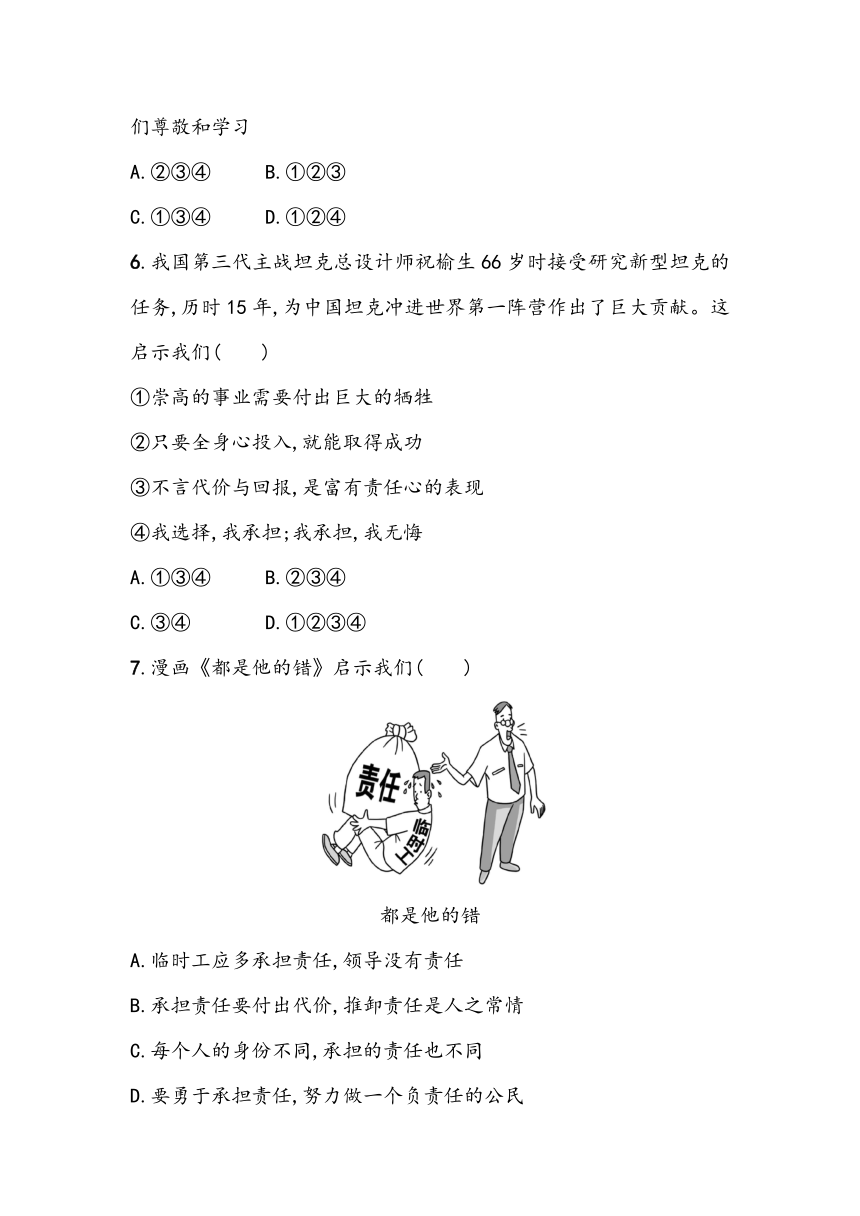 们尊敬和学习
A.②③④ B.①②③
C.①③④ D.①②④
6.我国第三代主战坦克总设计师祝榆生66岁时接受研究新型坦克的
任务,历时15年,为中国坦克冲进世界第一阵营作出了巨大贡献。这
启示我们( )
①崇高的事业需要付出巨大的牺牲
②只要全身心投入,就能取得成功
③不言代价与回报,是富有责任心的表现
④我选择,我承担;我承担,我无悔
A.①③④ B.②③④
C.③④ D.①②③④
7.漫画《都是他的错》启示我们( )
责任
临时工
都是他的错
A.临时工应多承担责任,领导没有责任
B.承担责任要付出代价,推卸责任是人之常情
C.每个人的身份不同,承担的责任也不同
D.要勇于承担责任,努力做一个负责任的公民